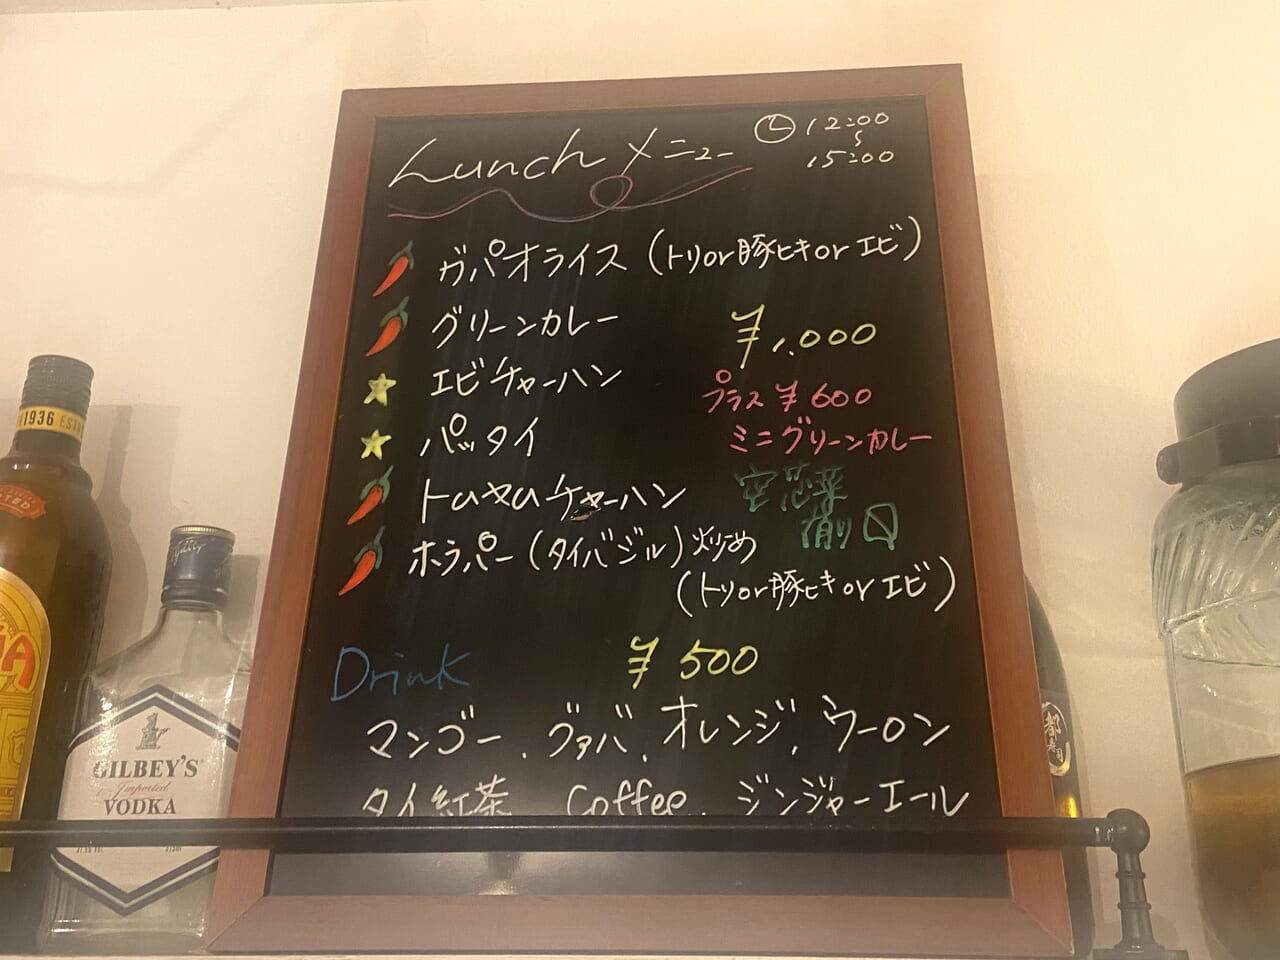 Lunch メニュー
12:00
〜
15:00
ガパオライス (トリor豚ヒキorエビ)
グリーンカレー
¥1,000
エビチャーハン
プラス¥600
パッタイ
ミニグリーンカレー
トムヤムチャーハン
空芯菜
ホラパー(タイバジル)炒め
(トリor豚ヒキorエビ)
Drink
¥500
マンゴー、グァバ、オレンジ、ウーロン
タイ紅茶 Coffee、ジンジャーエール
1936
GILBEY'S
Imported
VODKA